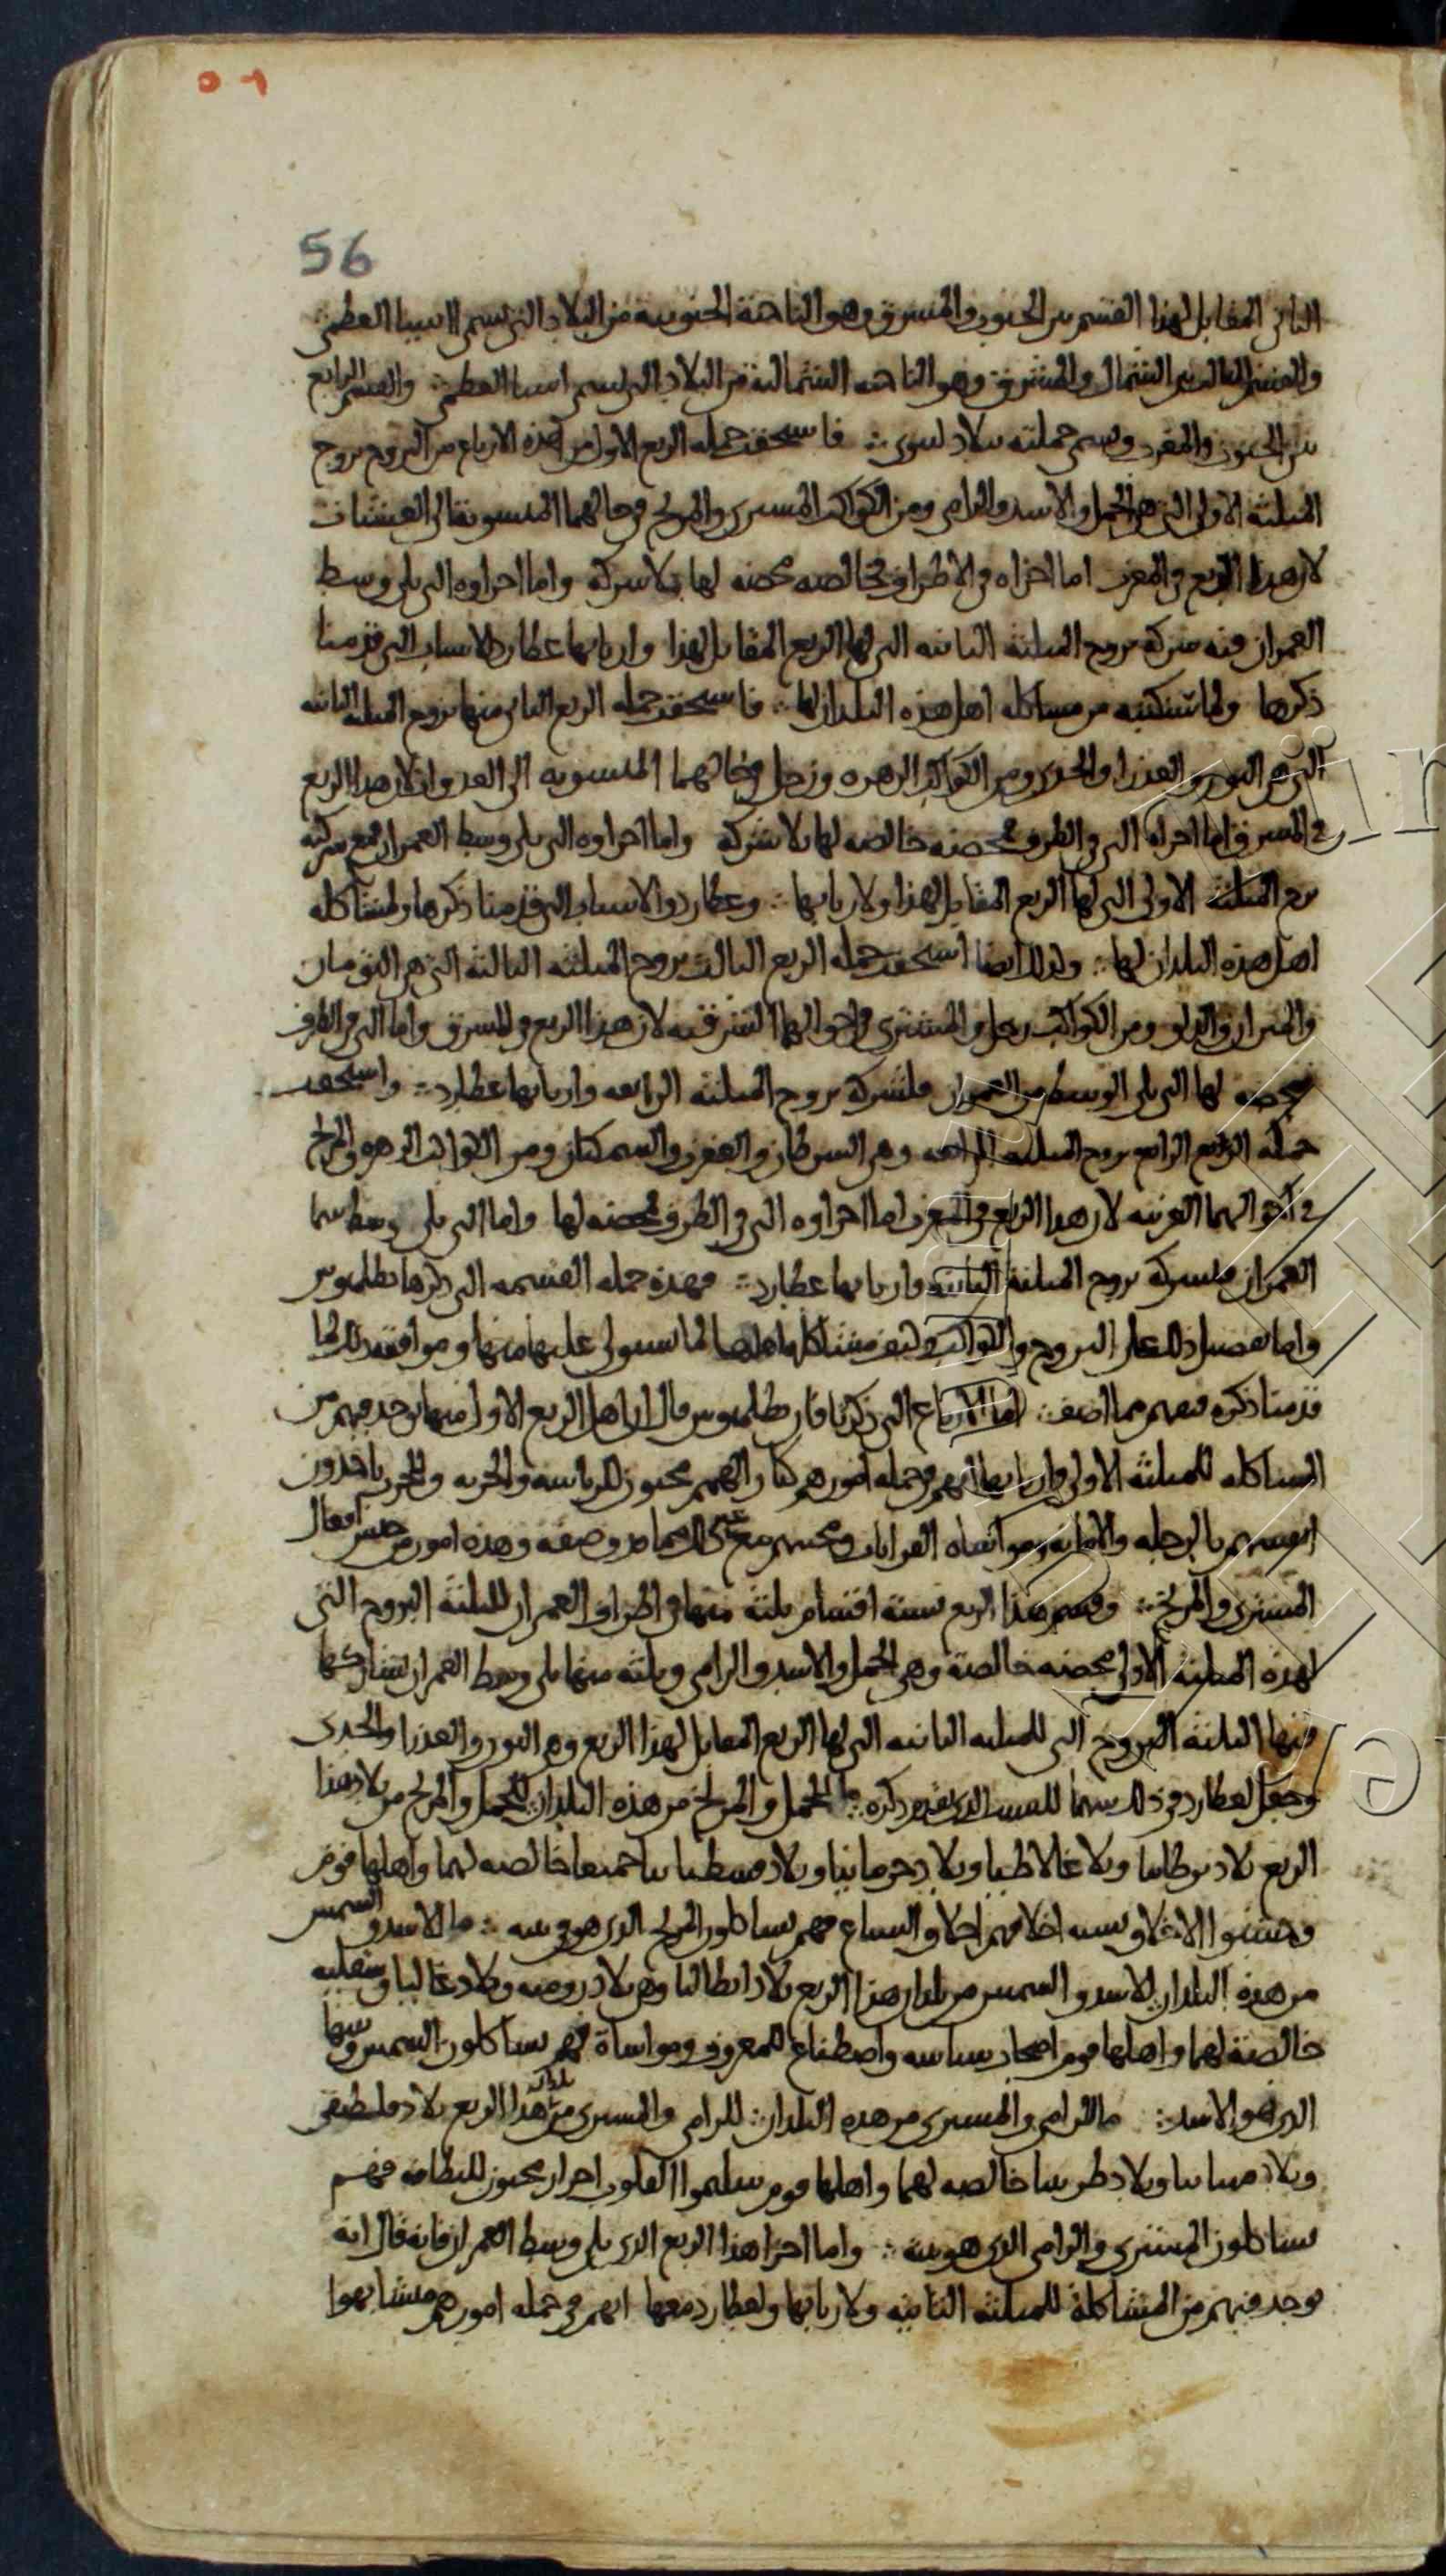 56
الثاني المقابل لهذا القسم بين الجنوب والمشرق وهو الناحية الجنوبية من البلاد التي تسمى اسيا العظمى
والقسم الثالث بين الشمال والمشرق وهو الناحية الشمالية من البلاد التي تسمى اسيا العظمى والقسم الرابع
بين الجنوب والمغرب ويسمى جملته ببلاد لبوى فاستحقت جملة الربع الاول من هذه الارباع من البروج بروج
المثلثة الاولى التي هي الحمل والاسد والرامي ومن الكواكب المشتري والمريخ في حالهما المنسوبة الى العشيات
لان هذا الربع في المغرب اما اجزاه في الاطراف فخالصه محضه لها بلا شركة واما اجزاوه التي يلي وسط
العمران فيه شركة بروج المثلثة الثانيه التي لها الربع المقابل لهذا واربابها عطارد للاسباب التي قدمنا
ذكرها ولما تبينه من مشاكله اهل هذه البلدان لها فاستحقت جمله الربع الثاني منها بروج المثلثه الثانيه
التي هي الثور والعذرا والجدي ومن الكواكب الزهره وزحل في حالهما المنسوبه الى الغدوات لان هذا الربع
في المشرق اما اجزاه التي في الطرف محضه خالصه لها بلا شركة واما اجزاوه التي يلي وسط العمران فمع شركة
برج المثلثة الاولى التي لها الربع المقابل لهذا ولاربابها وعطارد والاسباب التي قدمنا ذكرها ولمشاكله
اهل هذه البلدان لها وكذلك ايضا استحقت جمله الربع الثالث بروج المثلثه الثالثة التي هي التومان
والميزان والدلو ومن الكواكب زحل والمشتري في احوالهما الشرقيه لان هذا الربع في المشرق واما التي في الطرف
محضه لها التي يلي الوسط من العمران فلشركة بروج المثلثه الرابعه واربابها عطارد واستحقت
جملة الربع الرابع بروج المثلثه الرابعه وهي السرطان والعقرب والسمكتان ومن الكواكب الزهره والمريخ
في احوالهما الغربيه لان هذا الربع في المغرب اما اجزاوه التي في الطرف محضه لها واما التي يلي وسط
العمران فلشركة بروج المثلثة الثالثة واربابها عطارد فهذه جمله القسمه التي ذكرها بطلميوس
واما تفصيل ذلك على البروج والكواكب وكيف مشاكله اهلها لما استولى عليها منها وموافقة ذلك لما
قدمنا ذكره فيفهم مما اصف اما الارباع التي ذكرنا فان بطلميوس قال ان اهل الربع الاول منها يوجد فيهم من
المشاكله للمثلثة الاولى واربابها انهم في جملة امورهم كبار الهمم محبون للرياسه والحريه وللحرب ياخذون
انفسهم بالرجله والامانه ومواتاه القرابات ومحبتهم مع وهذه امور من جنس افعال
المشتري والمريخ وقسم هذا الربع ستة اقسام ثلثة منها في اطراف العمران للثلثة البروج التي
لهذه المثلثة الاولى محضه خالصة وهي الحمل والاسد والرامي وثلثه منها يلي وسط العمران تشاركها
فيها الثلثة البروج التي للمثلثه الثانيه التي لها الربع المقابل لهذا الربع وهو الثور والعذرا والجدى
وجعل لعطارد في ذلك سهما للسبب الذي تقدم ذكره ما للحمل والمريخ من هذه البلدان للحمل والمريخ من بلاد هذا
الربع بلاد برطانيا وبلاد غالاطيا وبلاد جرمانيا وبلاد جميعا خالصه لهما واهلها قوم
وحشيوا الاخلاق يشبه اخلاقهم اخلاق السباع فهم يشاكلون المريخ الذي هو بيته ما للاسد والشمس
من هذه البلدان للاسد والشمس من بلدان هذا الربع بلاد ايطاليا وهي بلاد روميه وبلاد غاليا وسقليه
خالصة لهما واهلها قوم اصحاب سياسه واصطناع للمعروف ومواساة فهم يشاكلون الشمس وبيتها
الذي هو الاسد ما للرامي والمشتري من هذه البلدان للرامي والمشتري من بلدان هذا الربع بلاد
وبلاد وبلاد خالصه لهما واهلها قوم سليموا القلوب احرار محبون للنظافه فهم
يشاكلون المشتري والرامي الذي هو بيته واما اجزا هذا الربع الذي يلي وسط العمران فانه قال انه
يوجد فيهم من المشاكلة للمثلثة الثانيه ولاربابها ولعطارد معها انهم في جمله امورهم مشابهوا